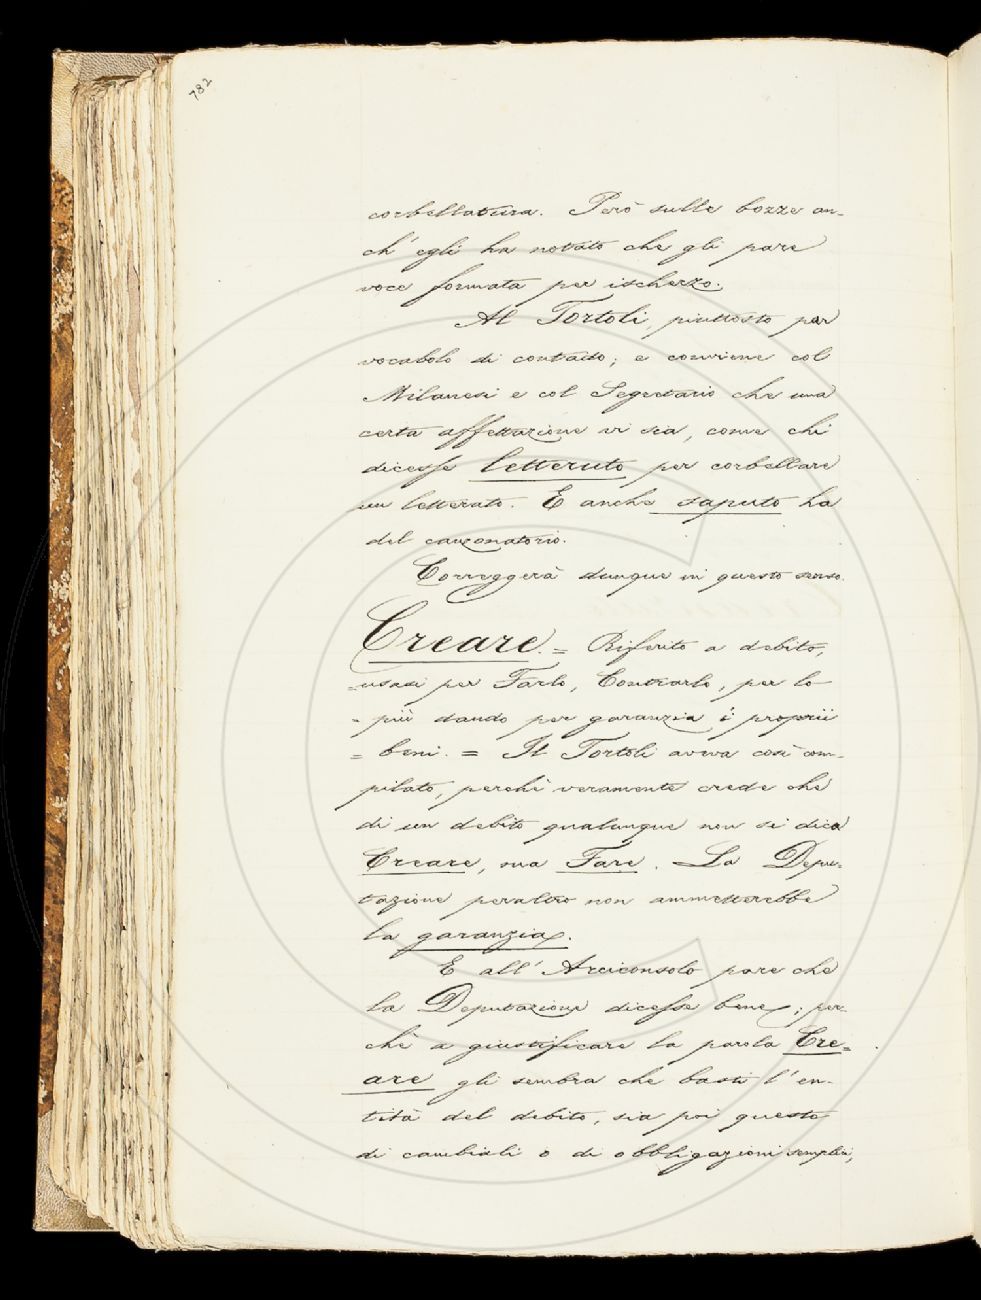 782
corbellatura. Però sulle bozze an-
ch' egli ha notato che gli pare
voce formata per ischerzo.
Al Tortoli, piuttosto par
vocabolo di contado; e conviene col
Milanesi e col Segretario che una
certa affettazione vi sia, come chi
dicesse letteruto per corbellare
un letterato. E anche saputo ha
del canzonatorio.
Correggerà dunque in questo senso.
Creare. = Riferito a debito,
= usasi per Farlo, Contrarlo, per lo
= più dando per garanzia i proprii
= beni. = Il Tortoli aveva così com-
pilato, perchè veramente crede che
di un debito qualunque non si dica
Creare, ma Fare. La Depu-
tazione peraltro non ammetterebbe
la garanzia.
E all' Arciconsolo pare che
la Deputazione dicesse bene; per-
chè a giustificare la parola Cre-
are gli sembra che basti l' en-
tità del debito, sia poi questo
di cambiali o di obbligazioni semplici,